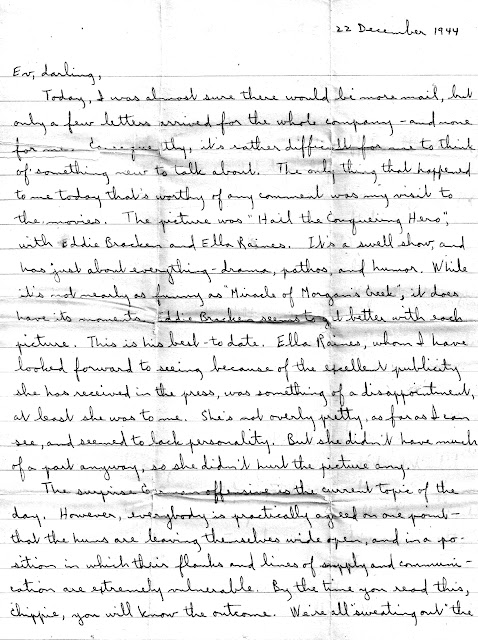 22 December 1944
Ev, darling,
Today, I was almost sure there would be more mail, but
only a few letters arrived for the whole company - and none
for me. Consequently, it's rather difficult for me to think
of something new to talk about. The only thing that happened
to me today that's worthy of any comment was my visit to
the movies. The picture was "Hail the Conquering Hero",
with Eddie Bracken and Ella Raines. It's a swell show, and
has just about everything - drama, pathos, and humor. While
it's not nearly as funny as "Miracle of Morgan's Creek", it does
have its moments. Eddie Bracken seems to get better with each
picture. This is his best - to date. Ella Raines, whom I have
looked forward to seeing because of the excellent publicity
she has received in the press, was something of a disappointment,
at least she was to me. She's not overly pretty, as far as I can
see, and seemed to lack personality. But she didn't have much
of a part anyway, so she didn't hurt the picture any.
The surprise offensive is the current topic of the
day. However, everybody is practically agreed on one point -
that the huns are leaving themselves wide open, and in a po-
sition in which their flanks and lines of supply and communi-
cation are extremely vulnerable. By the time you read this,
Chippie, you will know the outcome. We're all "sweating out" the